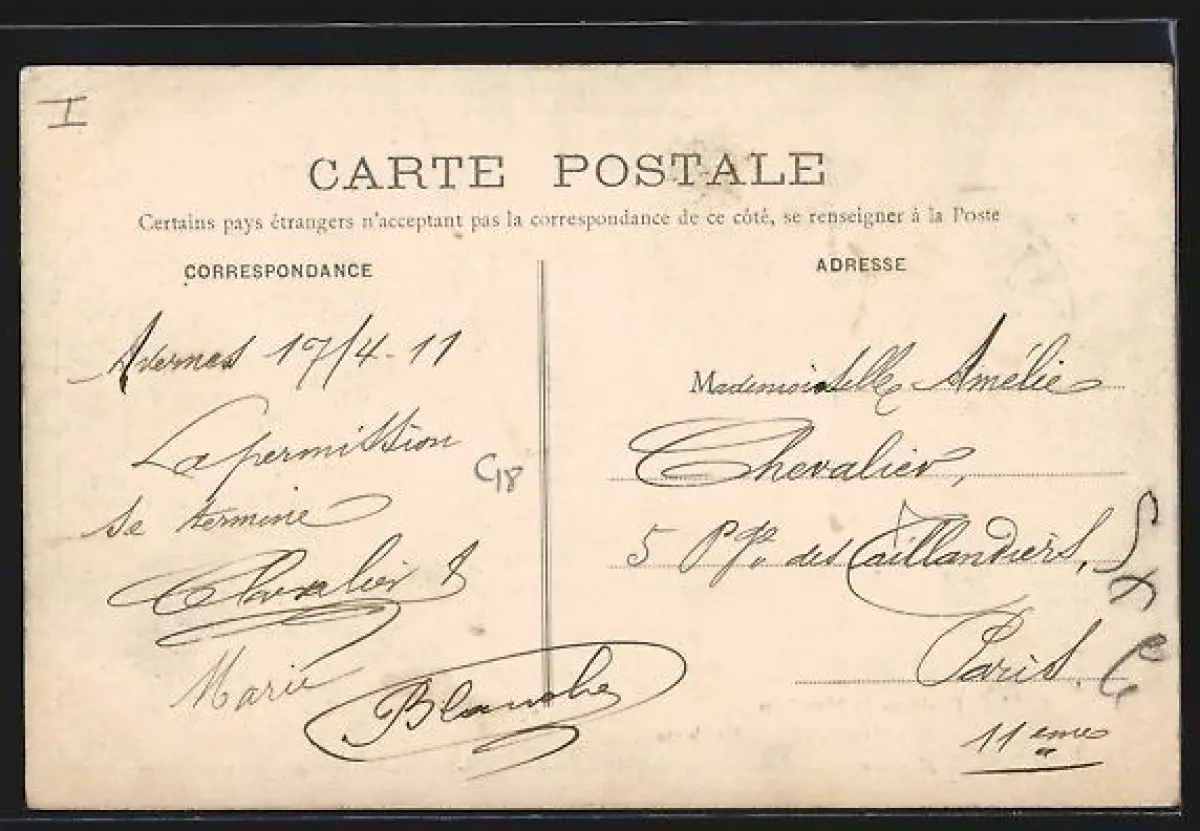 I
CARTE POSTALE
Certains pays étrangers n'acceptant pas la correspondance de ce côté, se renseigner à la Poste
CORRESPONDANCE
Avernes 17/4-11
La permission
se termine
Chevalier
Marie
Blanche
C18
ADRESSE
Mademoiselle Amélie
Chevalier,
5 Pge des Taillandiers,
Paris.
11ème